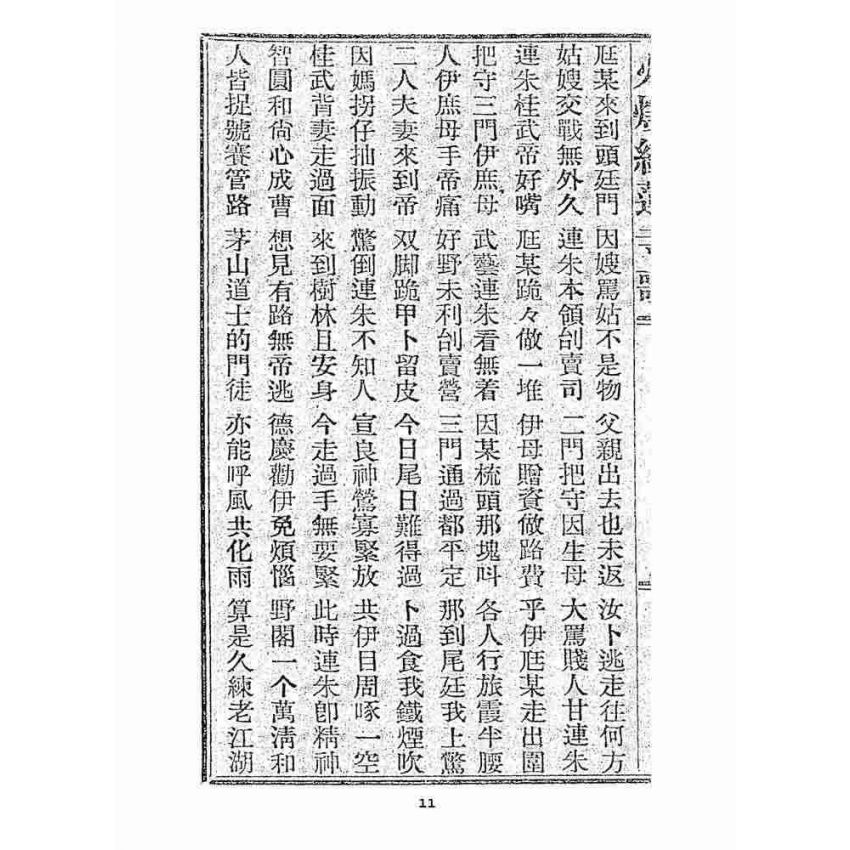 尫某來到頭廷門 因嫂罵姑不是物 父親出去也未返 汝卜逃走往何方
姑嫂交戰無外久 連朱本領刣賣司 二門把守因生母 大罵賤人甘連朱
連朱桂武帝好嘴 尫某跪々做一堆 伊母贈資做路費 乎伊尫某走出圍
把守三門伊庶母 武藝連朱看無着 因某梳頭那塊呌 各人行旅霞半腰
人伊庶母手帝痛 好野未利刣賣營 三門通過都平定 那到尾廷我上驚
二人夫妻來到帝 双脚跪甲卜留皮 今日尾日難得過 卜過食我鐵煙吹
因媽拐仔抽振動 驚倒連朱不知人 宣良神鶯寡緊放 共伊目周啄一空
桂武背妻走過面 來到樹林且安身 今走過手無要緊 此時連朱卽精神
智圓和尙心成曹 想見有路無帝逃 德慶勸伊免煩惱 野閣一个萬淸和
人皆捉號賽管路 茅山道士的門徒 亦能呼風共化雨 算是久練老江湖
11